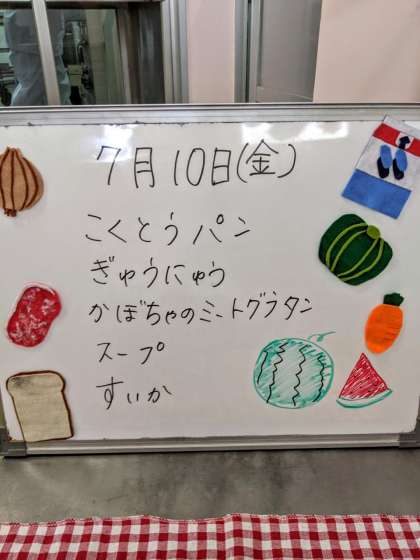 7月10日(金)
こくとうパン
ぎゅうにゅう
かぼちゃのミートグラタン
スープ
すいか